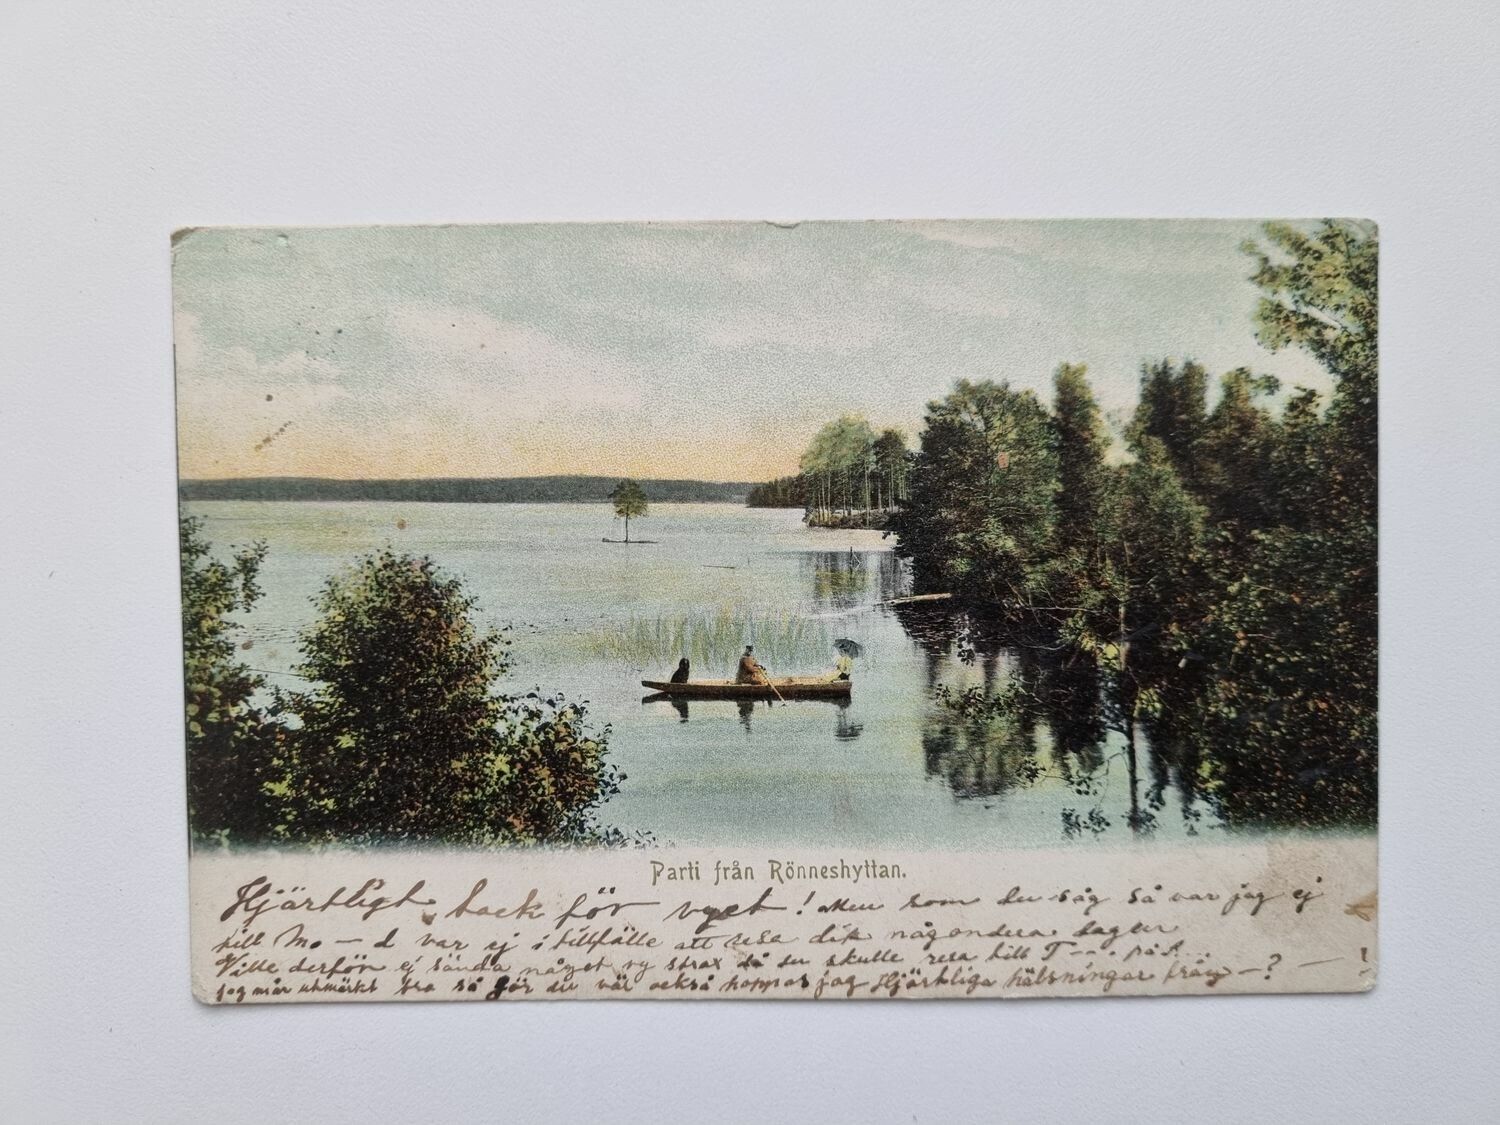 Parti från Rönneshyttan.
Hjärtligt tack för vyet! Men som du såg så var jag ej
till Mo — d var ej i tillfälle att resa dit någondera dagar
Ville derför ej sända något vy strax då du skulle resa till T
jag mår utmärkt bra så gör du väl också hoppas jag Hjärtliga hälsningar från — ? — !